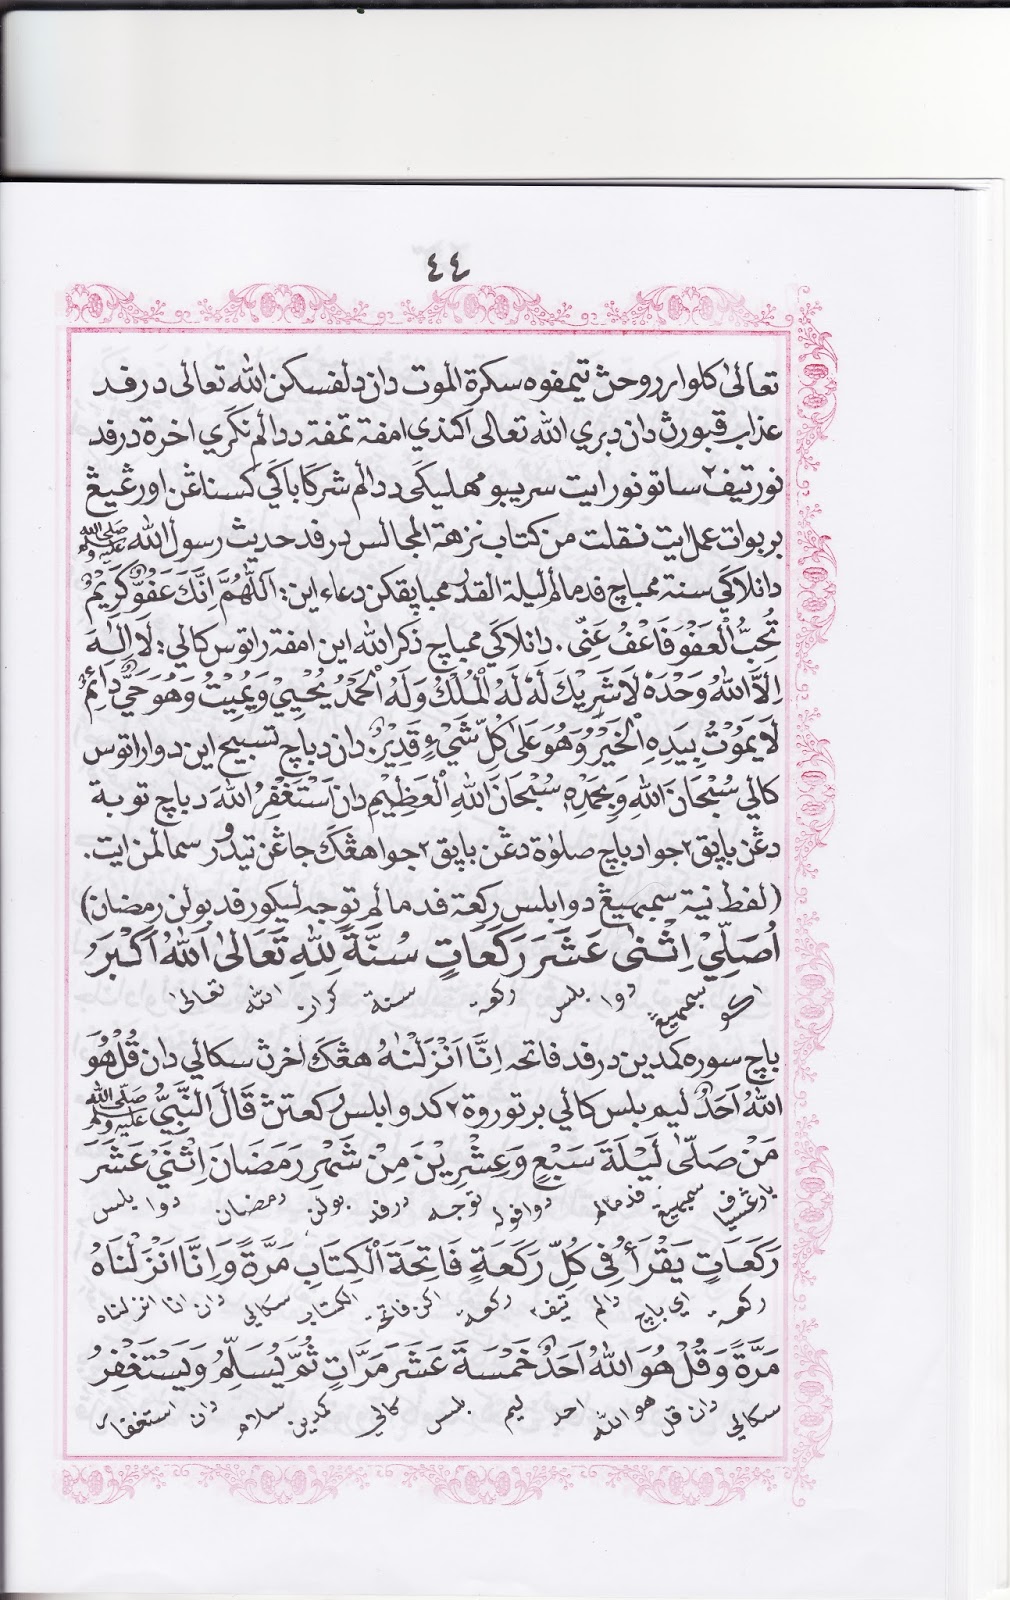 ٤٤
تعالى كلوار روحڽ تيمفوه سكرة الموت دان دلفسكن الله تعالى درفد
عذاب قبورڽ دان دبري الله تعالى اكندي امفة تمفة ددالم نڬري اخرة درفد
نور تيف٢ ساتو نور ايت سريبو مهليڬي ددالم شرڬا باڬي كسناڠن اورڠ يڠ
بربوات عمل ايت نقلت من كتاب نزهة المجالس درفد حديث رسول الله ﷺ
دان لاڬي سنة ممباچ فد مالم ليلة القدر ممباپقكن دعاء اين: اَللّٰهُمَّ اِنَّكَ عَفُوٌّ كَرِيْمٌ
تُحِبُّ الْعَفْوَ فَاعْفُ عَنِّى. دان لاڬي ممباچ ذكر الله اين امفة راتوس كالي: لَا اِلٰهَ
اِلَّا اللهُ وَحْدَهُ لَا شَرِيْكَ لَهُ لَهُ الْمُلْكُ وَلَهُ الْحَمْدُ يُحْيِيْ وَيُمِيْتُ وَهُوَ حَيٌّ دَائِمٌ
لَا يَمُوْتُ بِيَدِهِ الْخَيْرُ وَهُوَ عَلَى كُلِّ شَيْءٍ قَدِيْرٌ. دان دباچ تسبيح اين دوا راتوس
كالي سُبْحَانَ اللهِ وَبِحَمْدِهِ سُبْحَانَ اللهِ الْعَظِيْمِ دان اَسْتَغْفِرُ اللهَ دباچ توبة
دڠن باپق٢ جوا دباچ صلوٰة دڠن باپق٢ جوا هڠڬ جاڠن تيدور سمالمن ايت.
(لفظ نية سمبهيڠ دوا بلس ركعة فد مالم توجه ليكور فد بولن رمضان)
اُصَلِّيْ اِثْنَىْ عَشَرَ رَكَعَاتٍ سُنَّةً لِلّٰهِ تَعَالىٰ اَللهُ اَكْبَرُ
اكو سمبهيڠ دوا بلس ركعة سنة كران الله تعالى
باچ سوره كمدين درفد فاتحه اِنَّا اَنْزَلْنٰهُ هڠڬ اخرڽ سكالي دان قُلْ هُوَ
اللهُ اَحَدٌ ليم بلس كالي برتوروة٢ كدوا بلس ركعتڽ قَالَ النَّبِيُّ ﷺ
مَنْ صَلّٰى لَيْلَةَ سَبْعٍ وَعِشْرِيْنَ مِنْ شَهْرِ رَمَضَانَ اِثْنَيْ عَشَرَ
بارڠسياف سمبهيڠ فد مالم دوافوله توجه درفد بولن رمضان دوا بلس
رَكَعَاتٍ يَقْرَأُ فِى كُلِّ رَكَعَةٍ فَاتِحَةَ الْكِتَابِ مَرَّةً وَاِنَّا اَنْزَلْنَاهُ
ركعة اي باچ دالم تيف٢ ركعة اكن فاتحة الكتاب سكالي دان انا انزلناه
مَرَّةً وَقُلْ هُوَ اللهُ اَحَدٌ خَمْسَةَ عَشَرَ مَرَّاتٍ ثُمَّ يُسَلِّمُ وَيَسْتَغْفِرُ
سكالي دان قل هو الله احد ليم بلس كالي كمدين سلام دان استغفار